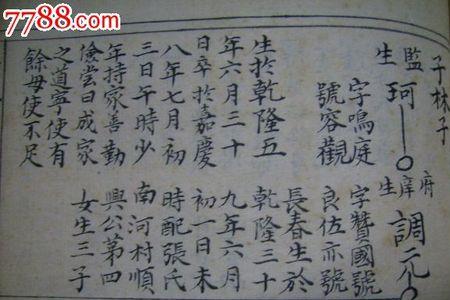 7788.com
子林子
監生 珂
字鳴庭
號容觀
生於乾隆五
年六月三十
日卒於嘉慶
八年七月初
三日午時少
年持家善勤
儉嘗曰成家
之道寧使有
餘毋使不足
府庠生 調元
字贊國號
良佐亦號
長春生於
乾隆三十
九年六月
初一日未
時配張氏
南河村順
興公第四
女生三子